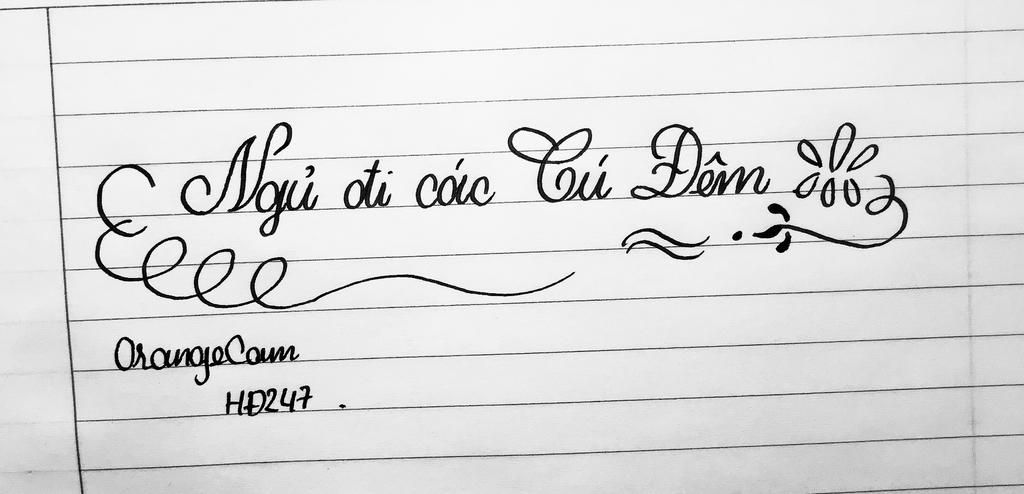 Ngủ đi các Cú Đêm
OrangeCam
HĐ247.